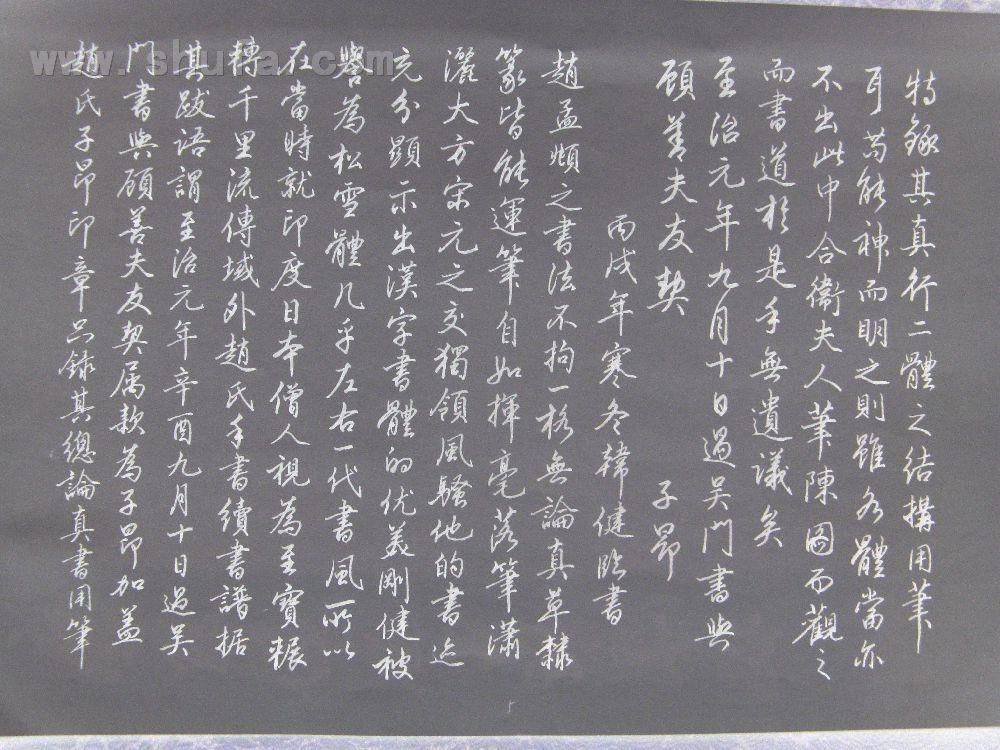 特錄其真行二體之結構用筆
耳苟能神而明之則雖各體當亦
不出此中合衛夫人筆陳圖而觀之
而書道於是乎無遺議矣
至治元年九月十日過吴門書與
顧善夫友契
子昂
丙戌年寒冬韓健臨書
趙孟頫之書法不拘一格無論真草隸
篆皆能運筆自如揮毫落筆瀟
灑大方宋元之交獨領風騷他的書迹
充分顯示出漢字書體的优美剛健被
譽為松雪體几乎左右一代書風所以
在當時就印度日本僧人視為至寶輾
轉千里流傳域外趙氏手書續書譜据
其跋語謂至治元年辛酉九月十日過吴
門書與顧善夫友契属款為子昂加盖
趙氏子昂印章只錄其總論真書用筆